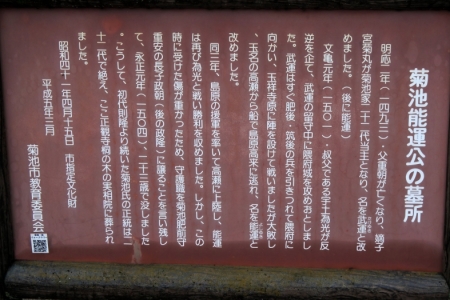 菊池能運公の墓所
明応二年(一四九三)・父重朝が亡くなり、嫡子
宮菊丸が菊池家二十二代当主となり、名を武運と改
めました。(後に能運)
文亀元年(一五〇一)・叔父である宇土為光が反
逆を企て、武運の留守中に隈府城を攻めおとしまし
た。武運はすぐ肥後・筑後の兵を引きつれて隈府に
向かい、玉祥寺原に陣を設けて戦いましたが大敗し
、玉名の高瀬から船で島原高来に逃れ、名を能運と
改めました。
同三年、島原の援軍を率いて高瀬に上陸し、能運
は再び為光と戦い勝利を収めました。しかし、この
時に受けた傷が重かったため、守護職を菊池肥前守
重安の長子政朝(後の政隆)に譲ることを言い残し
て、永正元年(一五〇四)、二十三歳で没しました
。こうして、初代則隆より続いた菊池氏の正統は二
十二代で絶え、ここ正観寺椎の木の実相院に葬られ
ました。
昭和四十一年四月十五日 市指定文化財
平成五年三月
菊池市教育委員会